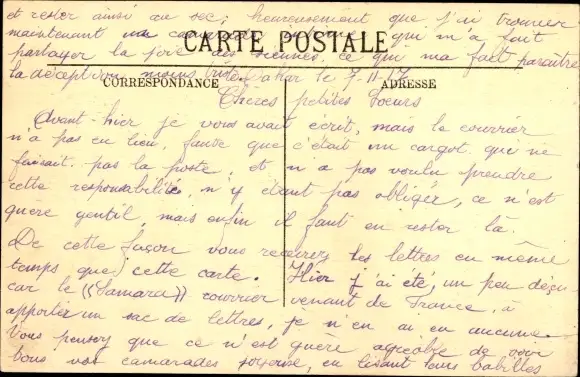 et rester ainsi au sec, heureusement que j'ai trouver
maintenant un camarade intime qui m'a fait
CARTE POSTALE
partager la joie des siennes, ce qui ma fait paraître
la déception moins triste. Dakar le 7-11-17
CORRESPONDANCE
ADRESSE
Cheres petites Soeurs
Avant-hier je vous avait écrit, mais le courrier
n'a pas eu lieu, cause que c'était un cargot qui ne
faisait pas la poste, et n'a pas voulu prendre
cette responsabilité, n'y étant pas obliger, ce n'est
guère gentil, mais enfin il faut en rester là.
De cette façon vous recevrez les lettres en même
temps que cette carte. Hier j'ai été, un peu déçu
car le ((Samara)) courrier venant de France, a
apporter un sac de lettres, je n'en ai eu aucune.
Vous pensez que ce n'est guère agréable de voir
tous vos camarades joyeuse, en lisant leurs babilles